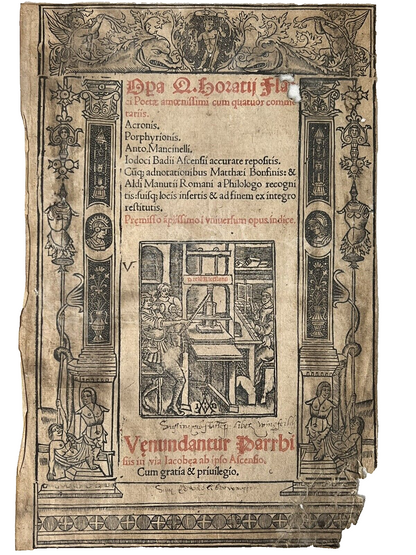 Opa Q. Horatij Fla
ci Poetæ amœnissimi cum quatuor comme
tariis.
Acronis.
Porphyrionis.
Anto. Mancinelli.
Iodoci Badii Ascensii accurate repositis.
Cũq; adnotationibus Matthæi Bonfinis &
Aldi Manutii Romani a Philologo recogni
tis: suisq; locis insertis & ad finem ex integro
restitutis.
Præmisso amplissimo in vniuersum opus indice.
Venundantur Parrhi
siis in via Iacobea ab ipso Ascensio,
Cum gratia & priuilegio,